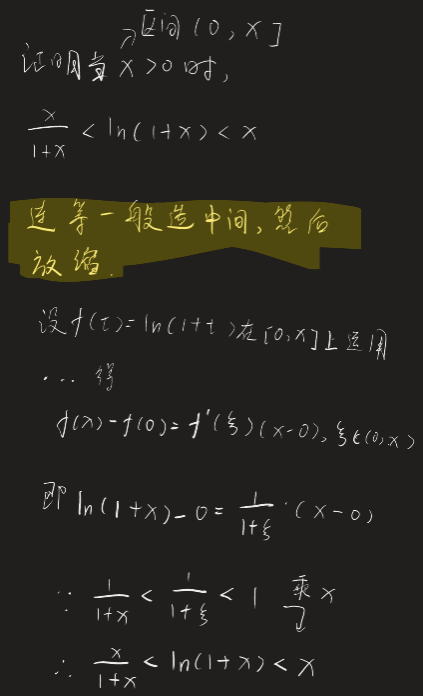 ↗区间[0,x]
证明当x>0时,
x/(1+x) < ln(1+x) < x
连等一般造中间,然后
放缩.
设f(t)=ln(1+t)在[0,x]上运用
... 得
f(x)-f(0)=f'(ξ)(x-0),ξ∈(0,x)
即 ln(1+x)-0=1/(1+ξ)·(x-0)
∵ 1/(1+x) < 1/(1+ξ) < 1 乘x
∴ x/(1+x) < ln(1+x) < x